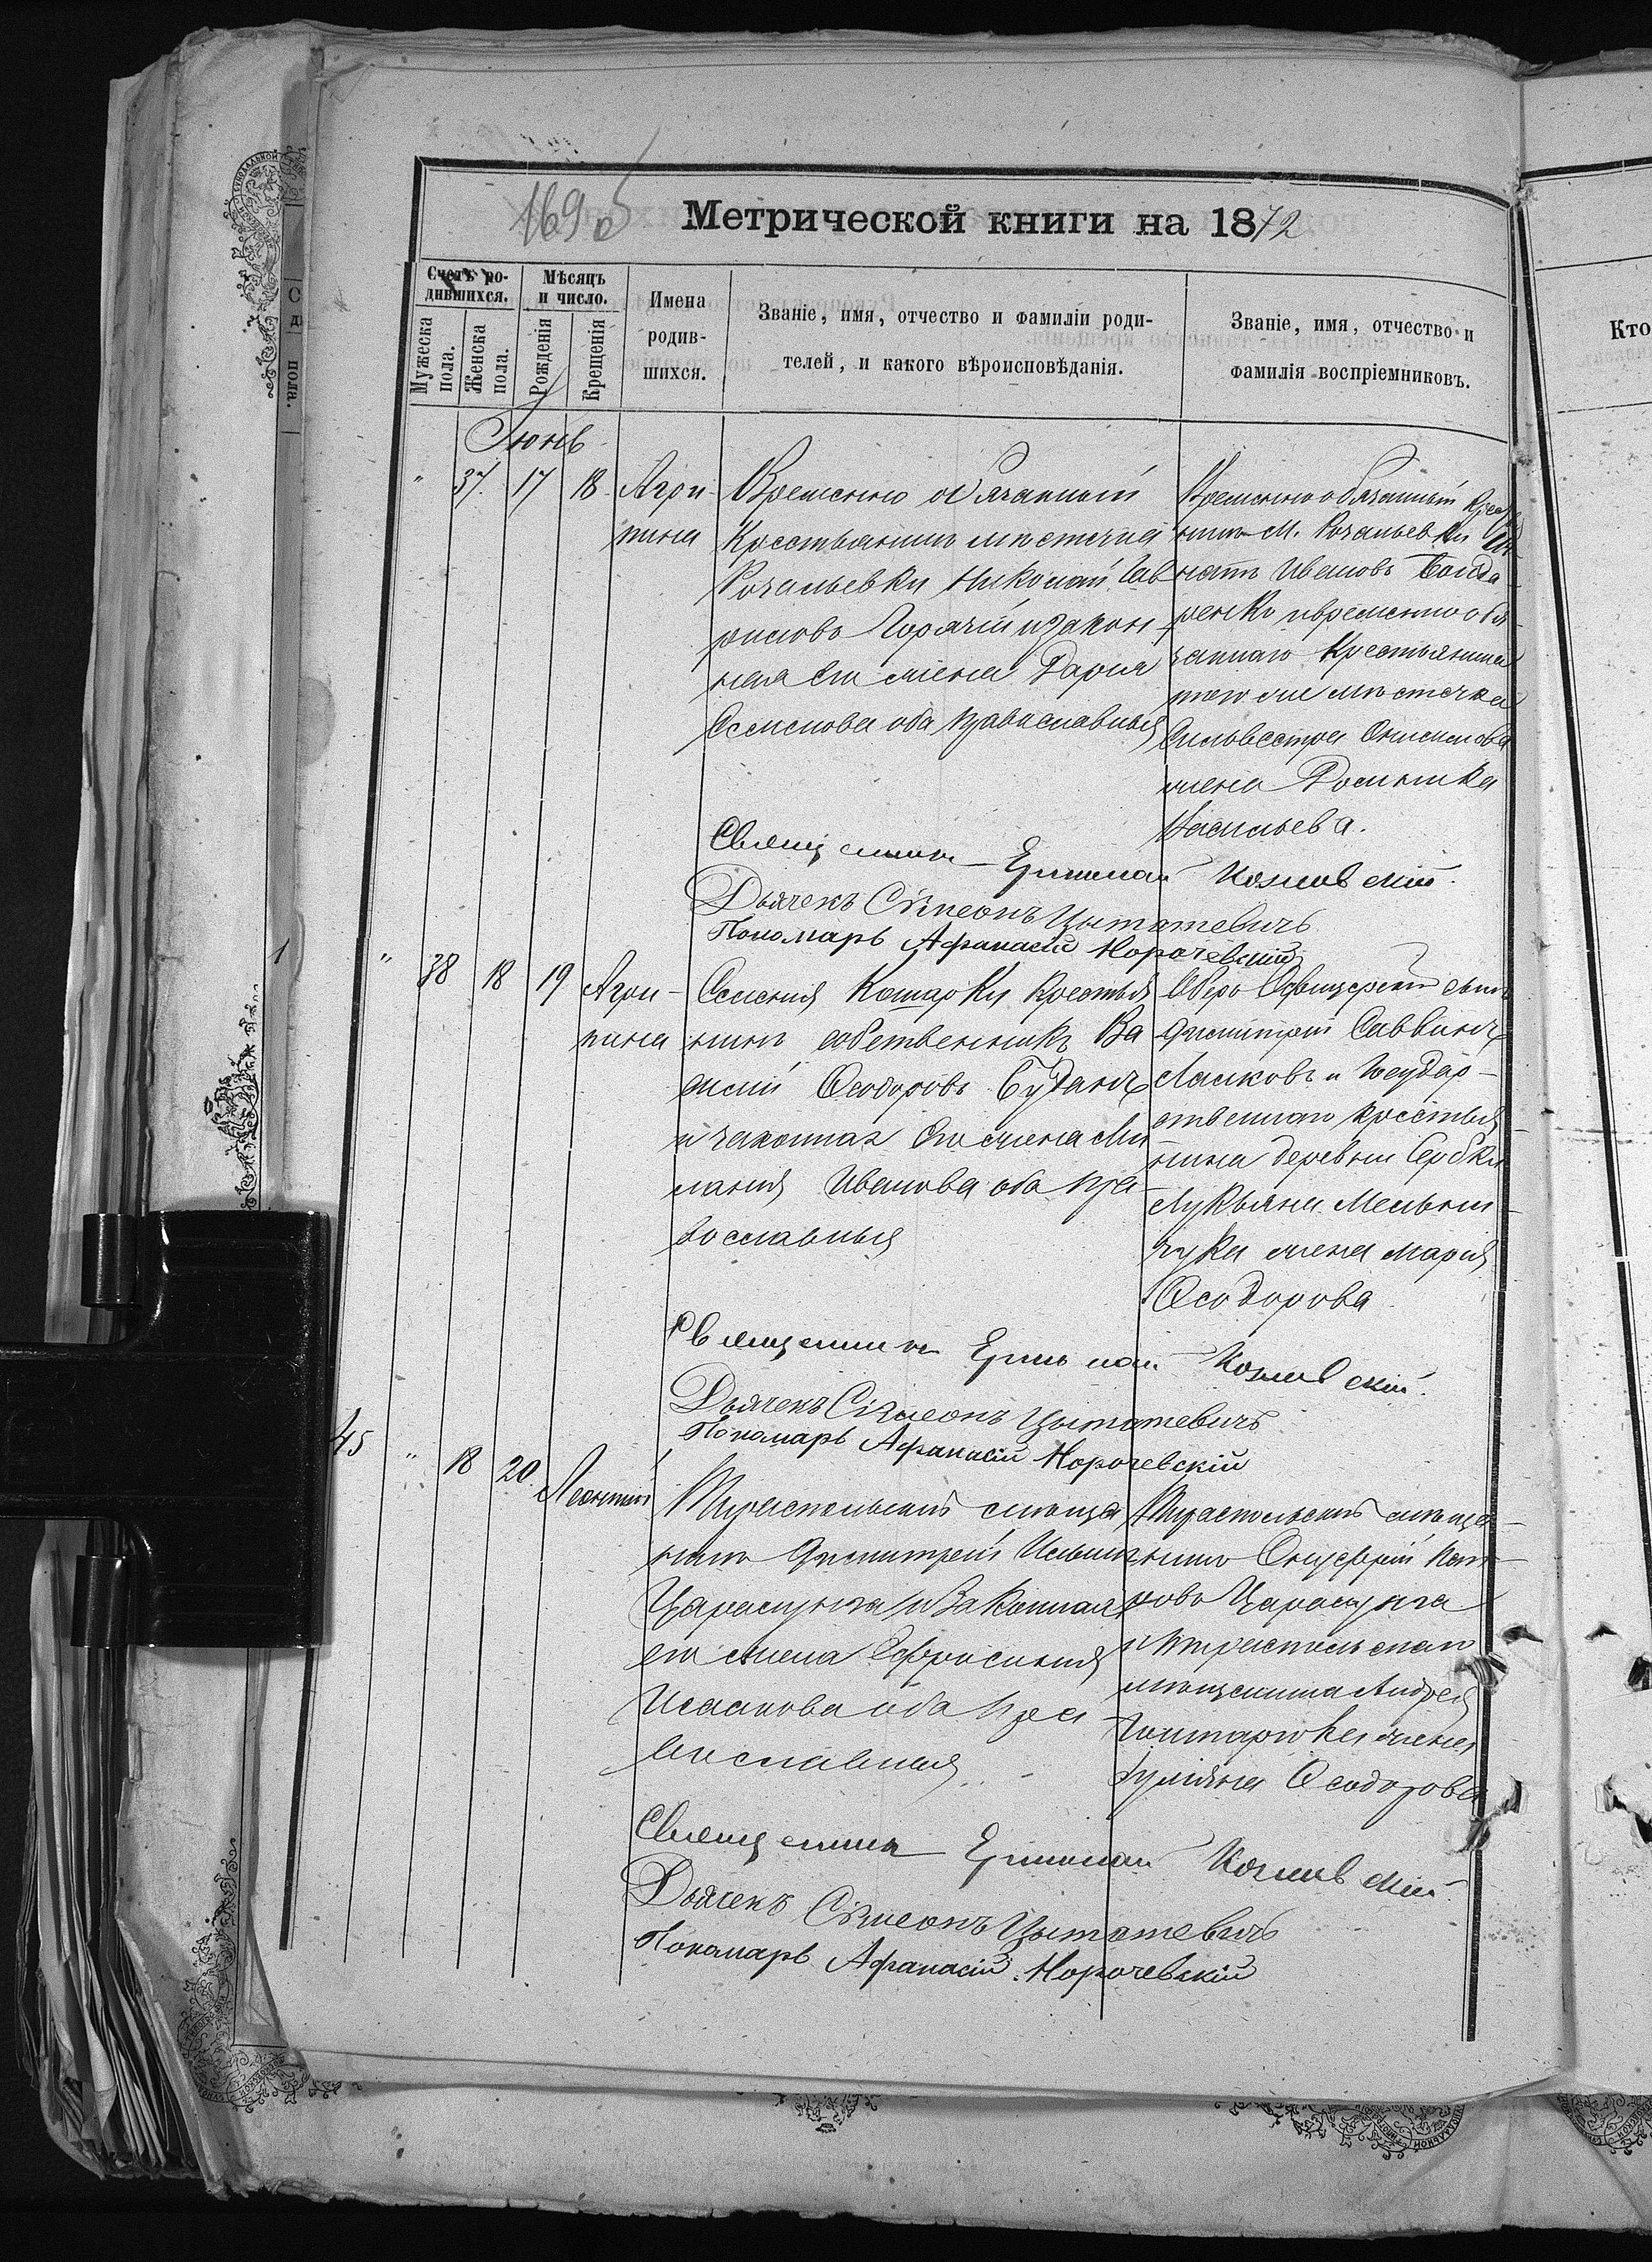 169 об
Метрической книги на 1872
Счетъ ро-
дившихся.
Мѣсяцъ
и число.
Мужеска
пола.
Женска
пола.
Рожденія
Крещенія
Имена
родив-
шихся.
Званіе, имя, отчество и фамиліи роди-
телей, и какого вѣроисповѣданія.
Званіе, имя, отчество и
фамилія воспріемниковъ.
Кто
Іюнь
" 37. 17 18. Агри-
пина
Временно обязанный
Крестьянинъ мѣстечка
Розальевки Николай Гав
риловъ Горячій и закон-
ная его жена Дарія
Семенова оба православныя
Временно обязанный
нинъ М. Розальевки
Ивановъ Бонда-
ренко и временно обя-
заннаго Крестьянина
того же мѣстечка
Сильвестра Онисимова
жена Домника
Васильева.
Священникъ Ермолай Козловскій.
Дьячекъ Сѵмеонъ Цытатевичъ
Пономарь Афанасій Норочевскій
" 38 18 19 Агри-
пина
Селенія Кошарки крестья
нинъ собственникъ Ва
силій Ѳеодоровъ Буданъ
и законная его жена Ме
ланія Иванова оба пра-
вославныя
Оберъ Офицерскій сынъ
Димитрій Саввинъ
Ласковъ и Государ-
ственнаго крестья-
нина деревни Сербки
Лукьяна Мельни-
чука жена Марія
Ѳеодорова
Священникъ Ермолай Козловскій.
Дьячекъ Сѵмеонъ Цытатевичъ
Пономарь Афанасій Норочевскій
45 " 18 20 Леонтій
Тираспольскій мѣща
нинъ Димитрій Ильинъ
Царалунга и Законная
его жена Ефросинія
Исаакова оба пра-
вославныя
Тираспольскій мѣща-
нинъ Онуфрій
ровъ Царалунга
и тираспольскаго
мѣщанина Андрея
жена
Іуліана Ѳеодорова
Священникъ Ермолай Козловскій.
Дьячекъ Сѵмеонъ Цытатевичъ
Пономарь Афанасій Норочевскій